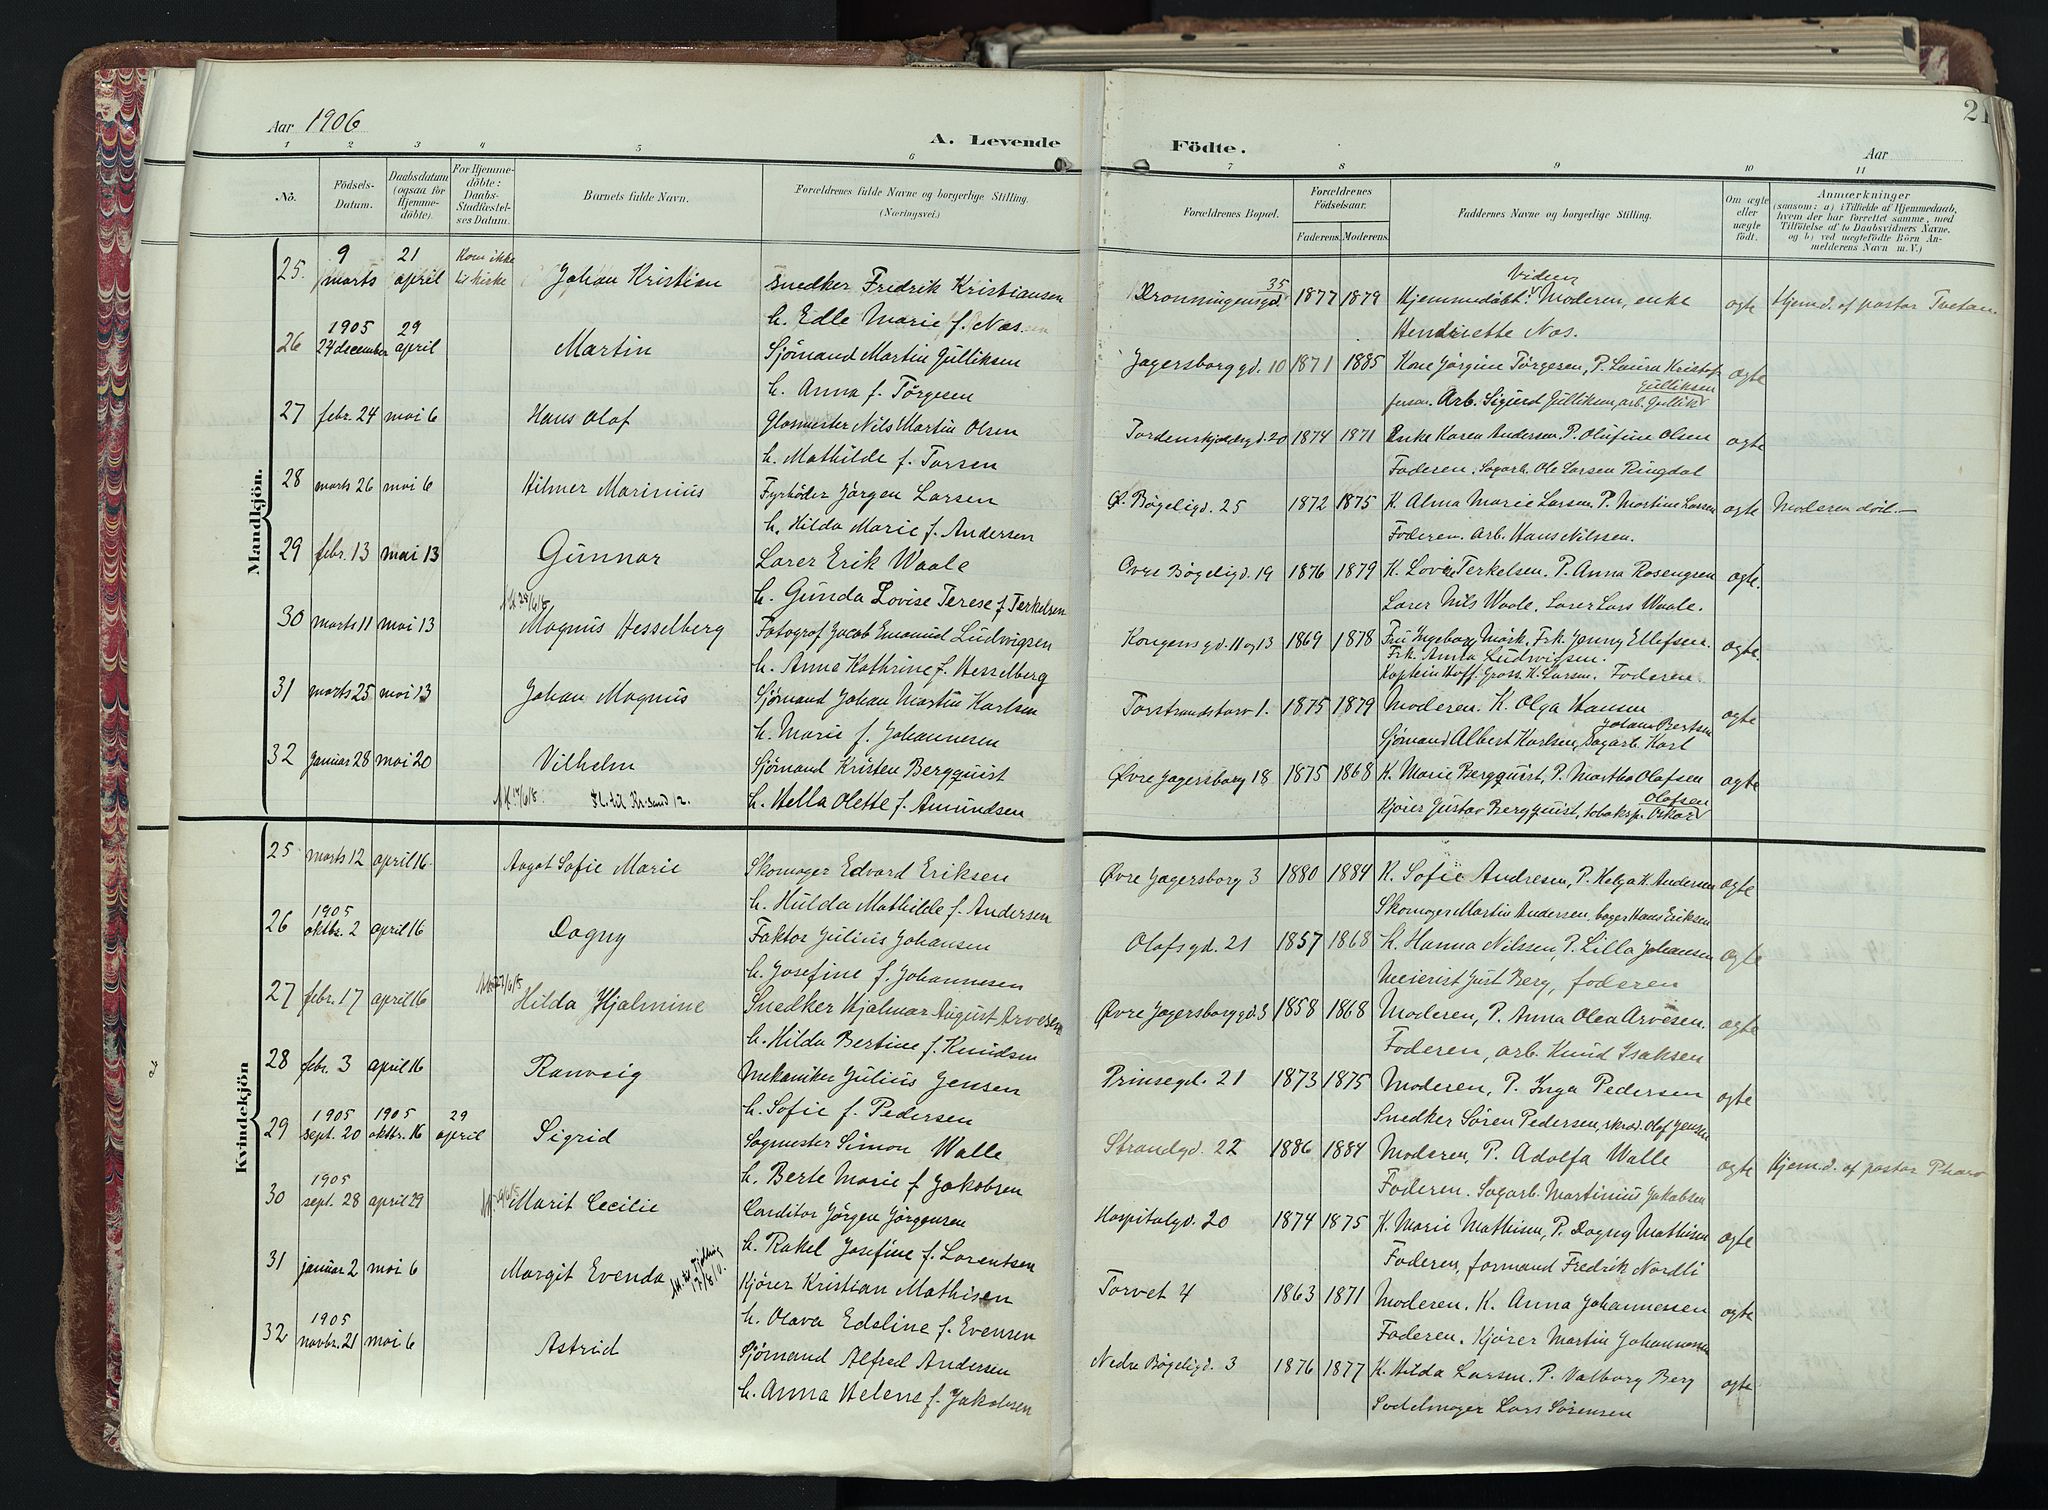 Aar 1906
A. Levende Födte.
Aar
21
1 2 3 4 5 6 7 8 9 10 11
No.
Födsels-Datum.
Daabsdatum (ogsaa for Hjemmedöbte).
For Hjemmedöbte: Daabs-Stadfæstelses Datum.
Barnets fulde Navn.
Forældrenes fulde Navne og borgerlige Stilling. (Næringsvei.)
Forældrenes Bopæl.
Forældrenes Födselsaar.
Faderens. Moderens.
Faddernes Navne og borgerlige Stilling.
Om ægte eller uægte födt.
Anmærkninger (saasom: a) i Tilfælde af Hjemmedaab, hvem der har forrettet samme, med Tilföielse af to Daabsvidners Navne, og b) ved uægtefödte Börn Anmelderens Navn m. V.)
Mandkjön.
25. 9 marts 21 april Kom ikke til kirke Johan Kristian Snedker Fredrik Kristiansen Dronningensgd. 35 1877 1879 Hjemmedøbt. Viden Moderen, enke ægte Hjem.d. af pastor Tvetam
h. Edle Marie f. Næs. Hendriette Næs.
26 1905 24 december 29 april Martin Sjømand Martin Gulliksen Jægersborggd. 10 1871 1885 Kone Jørgine Törgesen, P. Laura Kristof- ægte
h. Anna f. Törgesen fersen. Arb. Sigurd Gulliksen, arb. Gullik Gulliksen
27 febr. 24 mai 6 Hans Olaf Glasmester Nils Martin Olsen Tordenskjoldsgd. 20 1874 1871 Enke Karen Andersen P. Olufine Olsen ægte
h. Mathilde f. Torsen Faderen. Sagarb. Ole Larsen Ringdal
28 marts 26 mai 6 Hilmer Marinius Fyrbøder Jörgen Larsen Ø. Bøgeligd. 25 1872 1875 K. Alma Marie Larsen, P. Martine Larsen ægte Moderen död.
h. Hilda Marie f. Andersen Faderen. Arb. Hans Nilssen.
29 febr. 13 mai 13 Gunnar Lærer Erik Waale Øvre Bøgeligd. 19 1876 1879 K. Lovise Terkelsen. P. Anna Rosengsen ægte.
h. Gunda Lovise Terese f. Terkelsen Lærer Nils Waale, Lærer Lars Waale.
30 marts 11 mai 13 Magnus Hesselberg Fotograf Jacob Emanuel Ludvigsen Kongensgd. 11 og 13 1869 1878 Fru Ingeborg Mörk. Frk. Jenny Ellefsen. ægte.
Frk. Anita Ludvigsen.
h. Anna Kathrine f. Hesselberg Kaptein Hoff. Gross. K. Larsen. Faderen.
31 marts 25 mai 13 Johan Magnus Sjømand Johan Martin Karlsen Torstrandstorv 1. 1875 1879 Moderen. K. Olga Hansen ægte
h. Marie f. Johannesen Sjømand Albert Karlsen, Sagarb. Karl Johan Bertsen
32 Januar 28 mai 20 Vilhelm Sjømand Kristen Bergquist Øvre Jægersborg 18 1875 1868 K. Marie Bergquist, P. Martha Olafsen ægte
Fl. til Kr.sand 12. h. Hella Olette f. Amundsen Kjører Gustav Bergquist, tobaksp. Oskar Olafsen
Kvindekjön
25 marts 12 april 16 Aagot Sofie Marie Skomager Edvard Eriksen Øvre Jægersborg 3 1880 1884 K. Sofie Andresen, P. Helga K. Andersen ægte
h. Hulda Mathilde f. Andersen Skomager Martin Andersen. bager Hans Eriksen
26 1905 oktbr. 2 april 16 Dagny Faktor Julius Johansen Olafsgd. 21 1857 1868 K. Hanna Nilssen, P. Lilla Johansen ægte
h. Josefine f. Johannesen Meierist Just Berg, faderen
27 febr. 17 april 16 Hilda Hjalmine Snedker Hjalmar August Arvesen Øvre Jægersborggd. 3 1858 1868 Moderen, P. Anna Olea Arvesen. ægte
h. Hilda Bertine f. Knudsen Faderen, arb. Knud Isaksen
28 febr. 3 april 16 Ranveig Mekaniker Julius Jensen Prinsegd. 21 1873 1875 Moderen, P. Inga Pedersen ægte
h. Sofie f. Pedersen Snedker Sören Pedersen, skræd. Olaf Jensen
29 1905 sept. 20 1905 oktbr. 16 29 april Sigrid Sagmester Simon Walle Strandgd. 22 1886 1884 Moderen, P. Adolfa Walle ægte Hjem.d. af pastor Pharo
h. Berte Marie f. Jakobsen Faderen. Sagarb. Martinius Jakobsen
30 1905 sept. 28 april 29 Marit Cecilie Conditor Jörgen Jörgensen Hospitalgd. 20 1874 1875 K. Marie Mathisen, P. Dagny Mathisen ægte
h. Rakel Josefine f. Lorentsen Faderen, formand Fredrik Nordli
31 januar 2 mai 6 Margit Evenda Kjører Kristian Mathisen Torvet 4 1863 1871 Moderen. K. Anna Johannessen ægte
h. Olava Edeline f. Evensen Faderen. Kjører Martin Johannesen
32 1905 novbr. 21 mai 6 Astrid Sjømand Alfred Andersen Nedre Bøgeligd. 3 1876 1877 K. Hilda Larsen. P. Valborg Berg ægte
h. Anna Helene f. Jakobsen Sadelmager Lars Sørensen